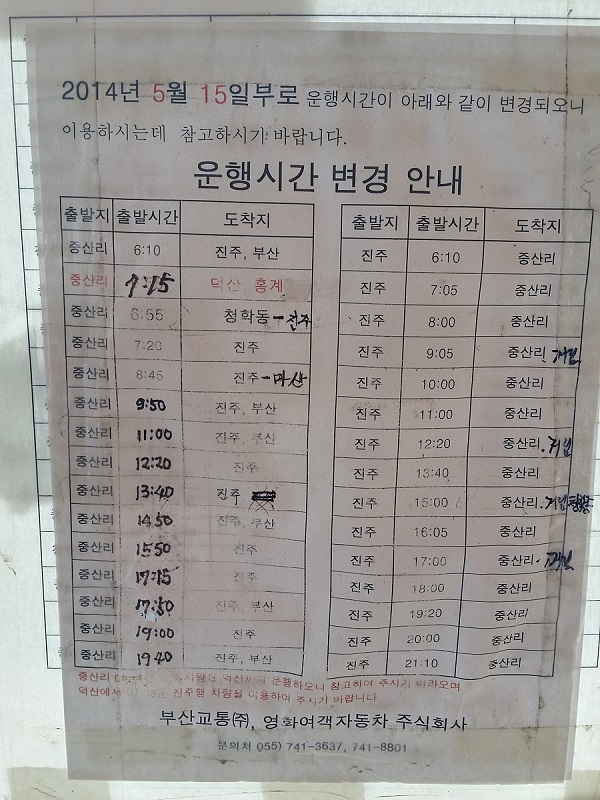 2014년 5월 15일부로 운행시간이 아래와 같이 변경되오니
이용하시는데 참고하시기 바랍니다.
운행시간 변경 안내
출발지 출발시간 도착지
중산리 6:10 진주, 부산
중산리 7:15 덕산, 홍계
중산리 6:55 청학동-진주
중산리 7:20 진주
중산리 8:45 진주-마산
중산리 9:50 진주, 부산
중산리 11:00 진주, 부산
중산리 12:20 진주
중산리 13:40 진주
중산리 14:50 진주, 부산
중산리 15:50 진주
중산리 17:15 진주
중산리 17:50 진주, 부산
중산리 19:00 진주
중산리 19:40 진주, 부산
출발지 출발시간 도착지
진주 6:10 중산리
진주 7:05 중산리
진주 8:00 중산리
진주 9:05 중산리 거림
진주 10:00 중산리
진주 11:00 중산리
진주 12:20 중산리. 거림
진주 13:40 중산리
진주 15:00 중산리. 거림
진주 16:05 중산리
진주 17:00 중산리. 거림
진주 18:00 중산리
진주 19:20 중산리
진주 20:00 중산리
진주 21:10 중산리
중산리 운행하오니 참고하여 주시기 바라오며
덕산에서 진주행 차량을 이용하여 주시기 바랍니다.
부산교통(주), 영화여객자동차 주식회사
문의처 055) 741-3637, 741-8801